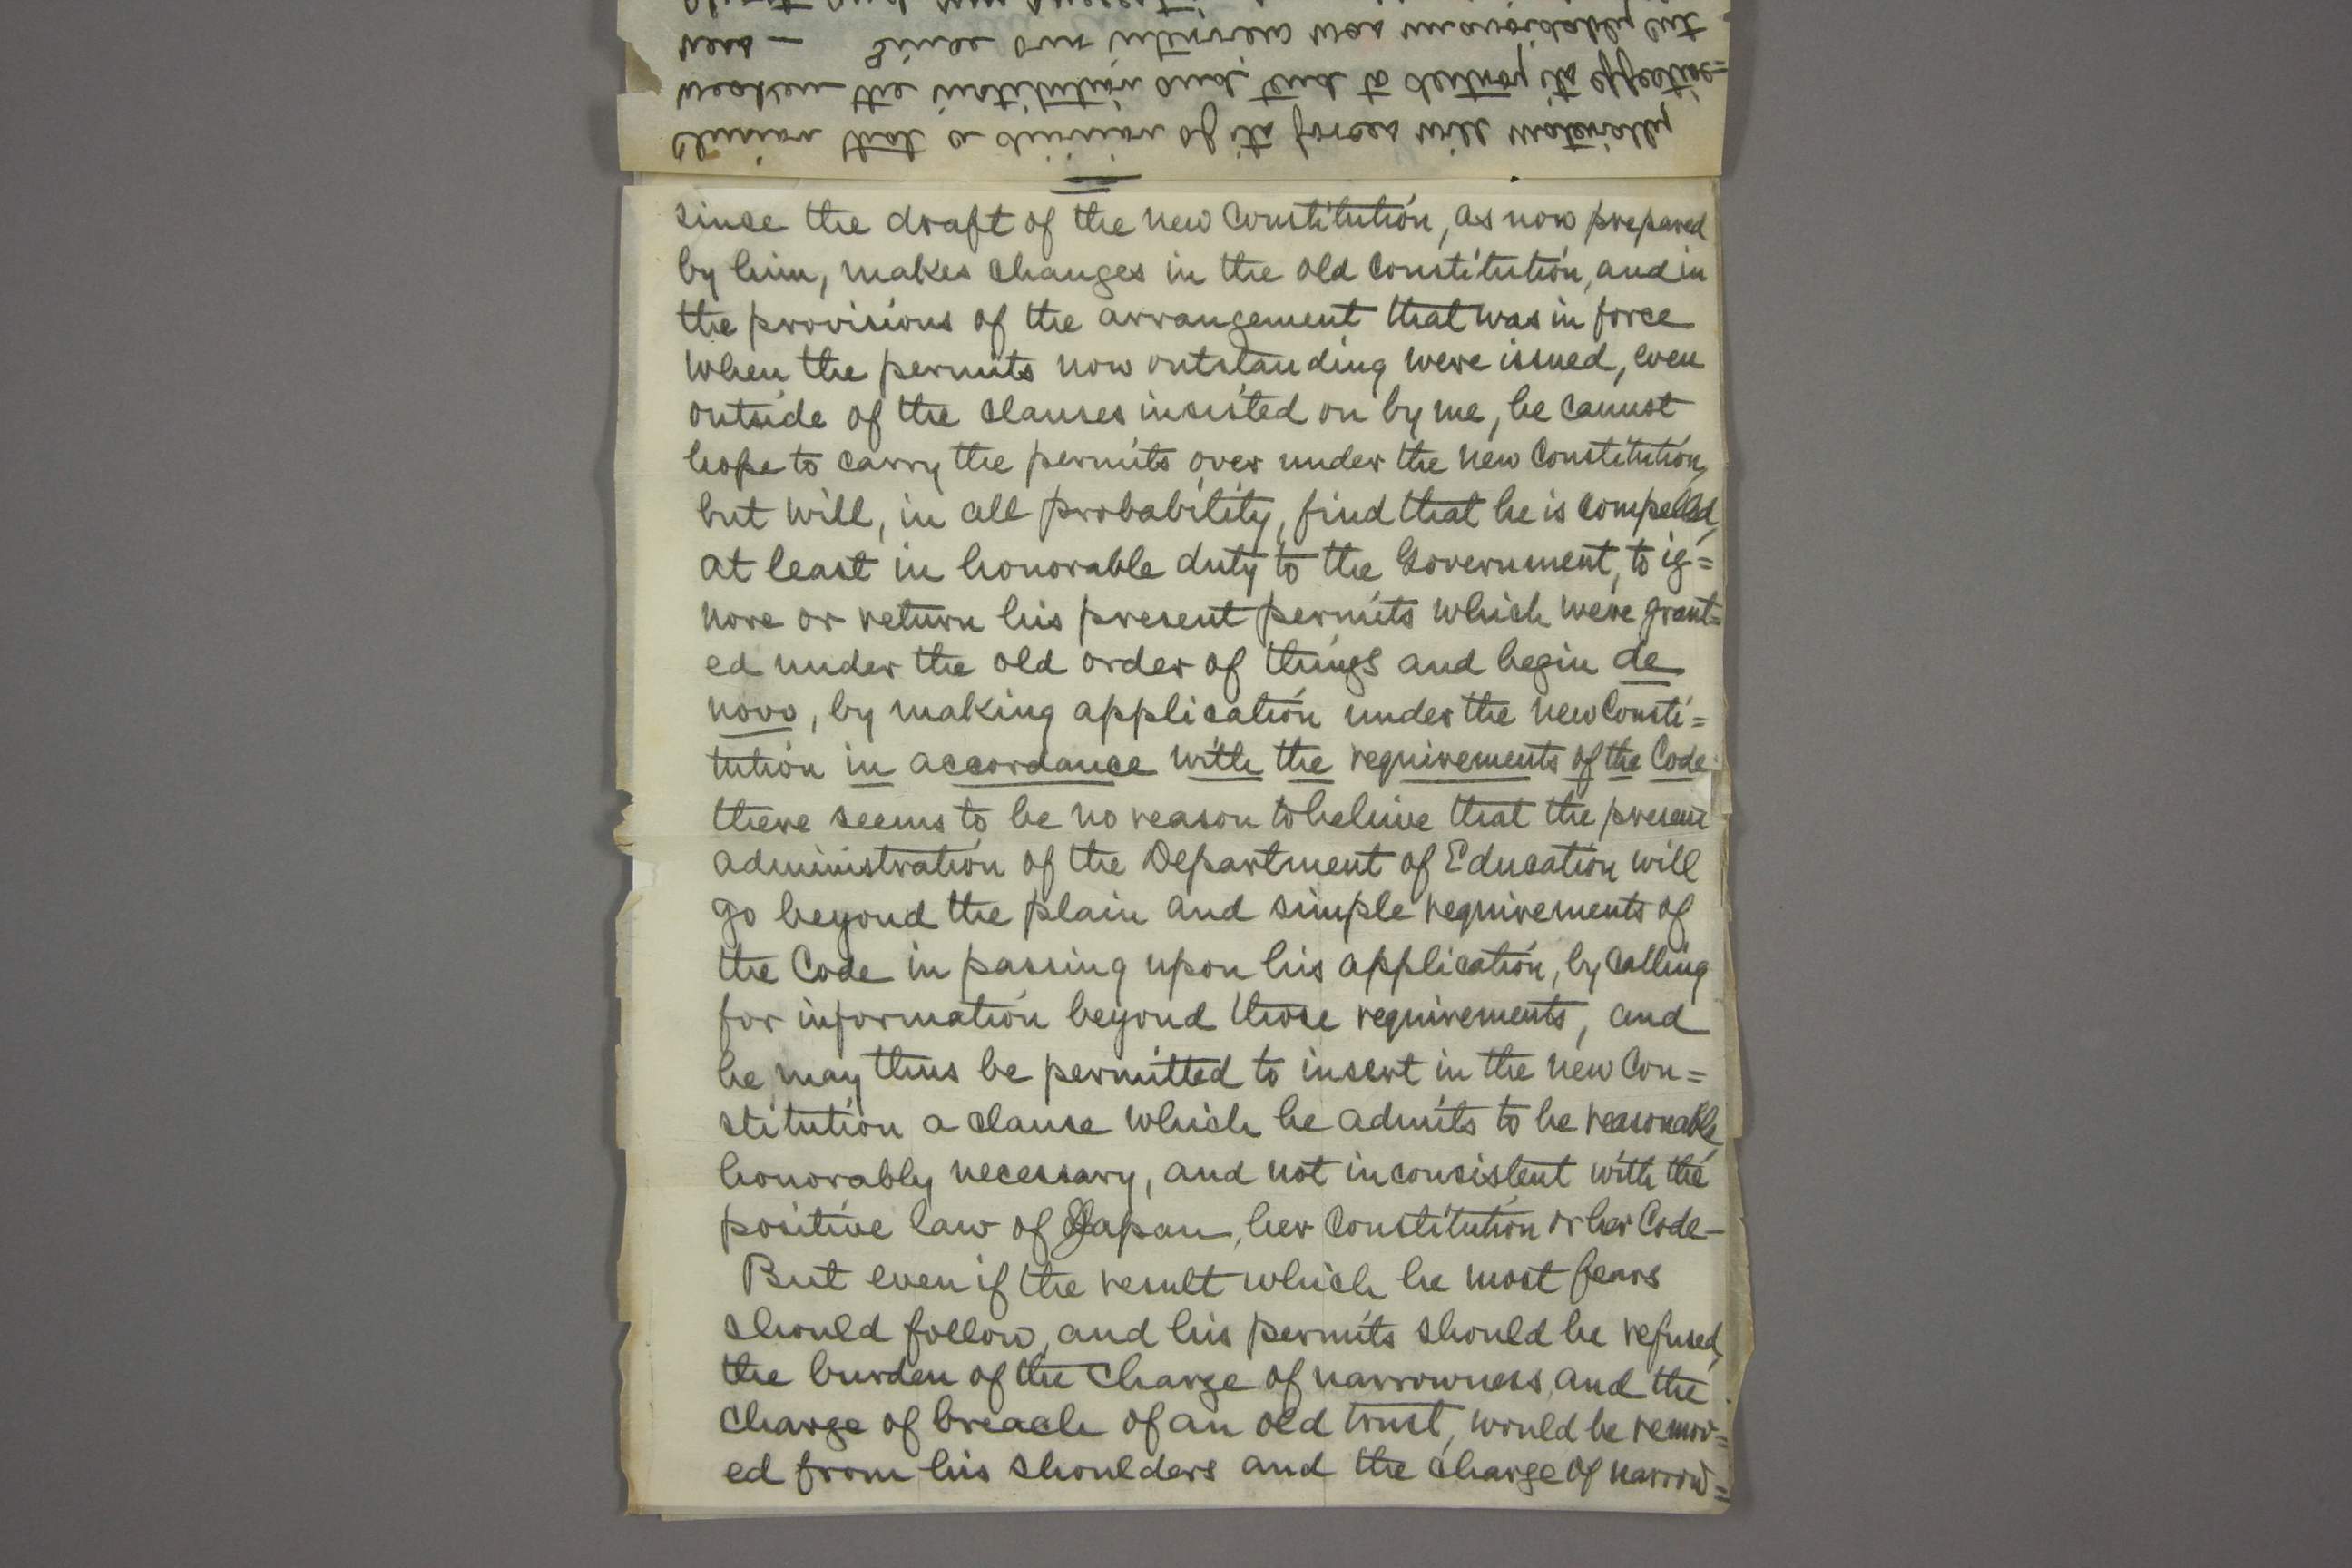 since the draft of the new Constitution, as now prepared
by him, makes changes in the old Constitution, and in
the provisions of the arrangement that was in force
when the permits now outstanding were issued, even
outside of the clauses insisted on by me, he cannot
hope to carry the permits over under the new Constitution,
but will, in all probability, find that he is compelled,
at least in honorable duty to the Government, to ig=
nore or return his present permits which were grant=
ed under the old order of things and begin de
novo, by making application under the new Consti=
tution in accordance with the requirements of the Code.
there seems to be no reason to believe that the present
administration of the Department of Education will
go beyond the plain and simple requirements of
the Code in passing upon his application, by calling
for information beyond those requirements, and
he may thus be permitted to insert in the new Con=
stitution a clause which he admits to be reasonable,
honorably necessary, and not inconsistent with the
positive law of Japan, her Constitution or her Code—
But even if the result which he most fears
should follow, and his permits should be refused,
the burden of the charge of narrowness, and the
charge of breach of an old trust, would be remov=
ed from his shoulders and the charge of narrow=